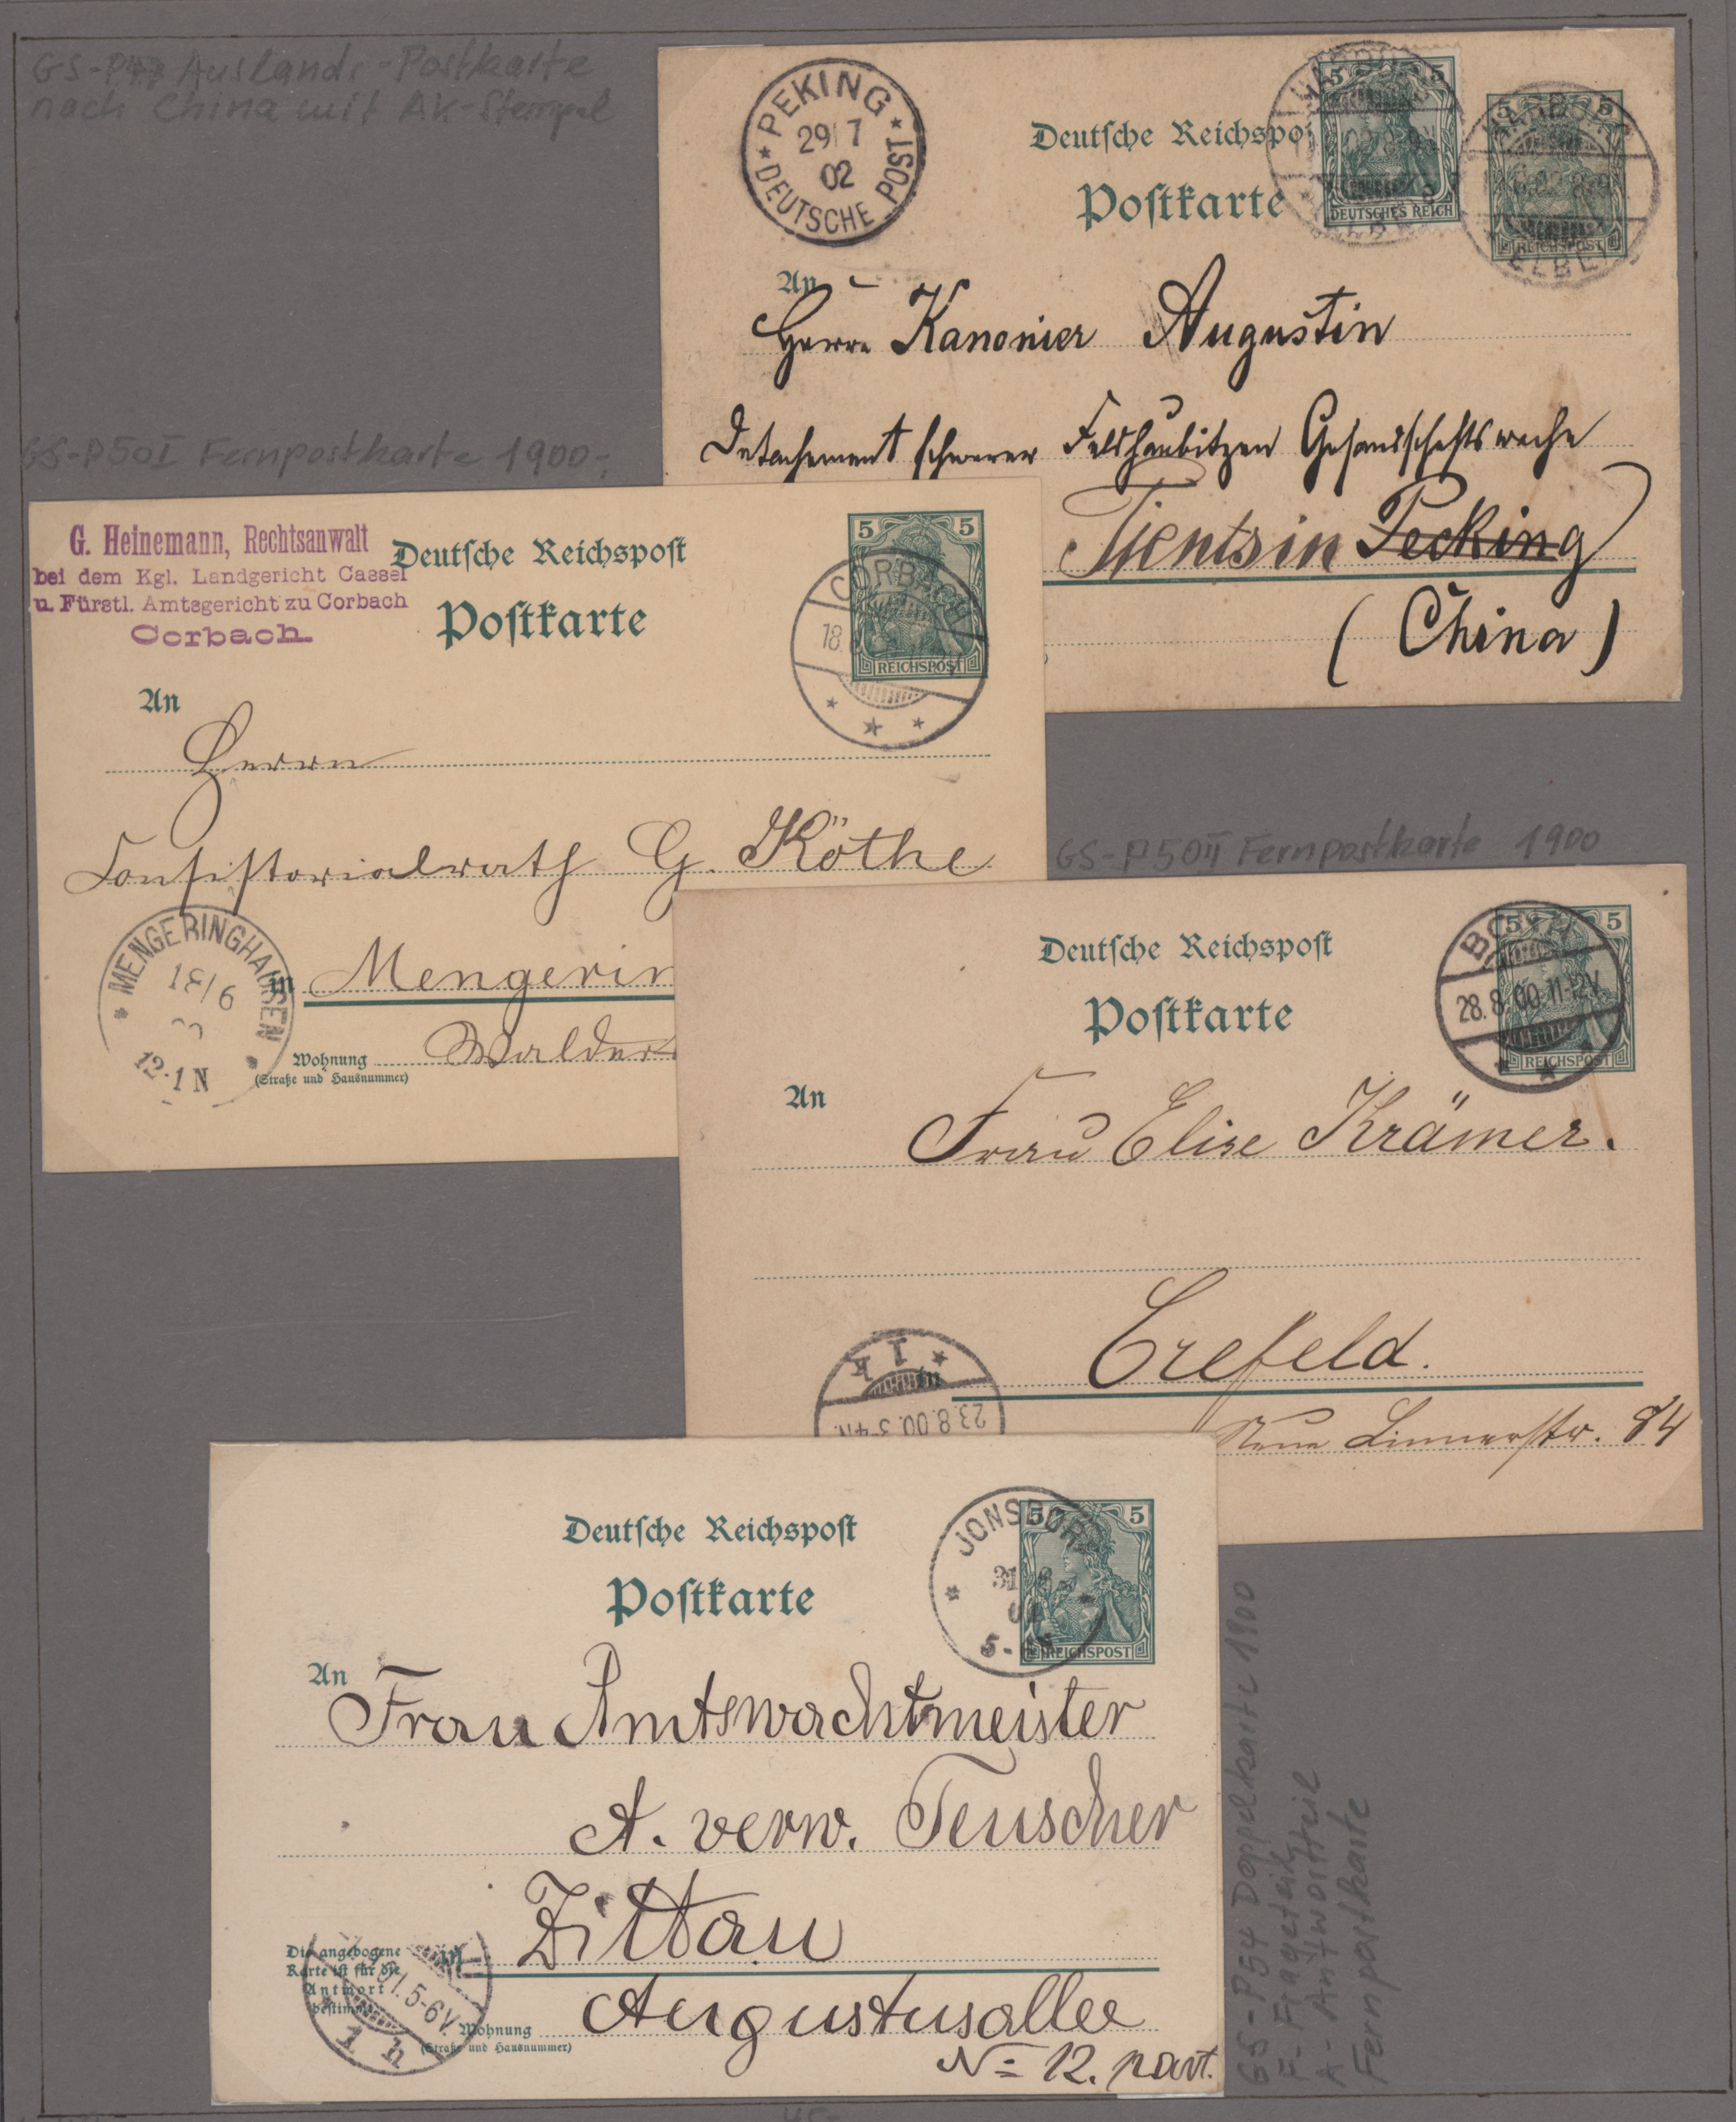 GS-P Auslands-Postkarte
nach China mit AK-Stempel
PEKING
29/7
02
DEUTSCHE POST
Deutsche Reichspo
Postkarte
5 5
DEUTSCHES REICH
5 5
REICHSPOST
An
Herrn Kanonier Augustin
Detachement schwerer Feldhaubitzen Gesandschaftswache
Tientsin Pecking
(China)
GS-P50I Fernpostkarte 1900
G. Heinemann, Rechtsanwalt
bei dem Kgl. Landgericht Cassel
u. Fürstl. Amtsgericht zu Corbach
Corbach.
Deutsche Reichspost
Postkarte
5 5
REICHSPOST
CORBACH
18.
An
Herrn
Consistorialrath G. Köthe
MENGERINGHAUSEN
12-1 N
in Mengerin
Wohnung
(Straße und Hausnummer)
Waldec
GS-P50II Fernpostkarte 1900
Deutsche Reichspost
Postkarte
5 5
REICHSPOST
28.8.00.11-12V.
An
Frau Elise Krämer.
in Crefeld.
1 k
23.8.00.
Neue Linnerstr. 84
Deutsche Reichspost
Postkarte
5 5
REICHSPOST
JONSDORF
An
Frau Amtswachtmeister
A. verw. Teuscher
in Zittau
Die angebogene
Karte ist für die
Antwort
bestimmt.
5-6V.
1 h
Wohnung
(Straße und Hausnummer)
Augustusallee
No 12. part.
GS-P54 Doppelkarte 1900
F- Frageteil
A- Antwortteil
Fernpostkarte